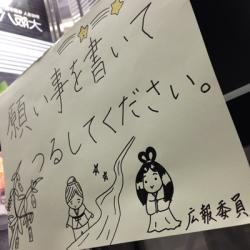 願い事を書いて
つるしてください。
広報委員